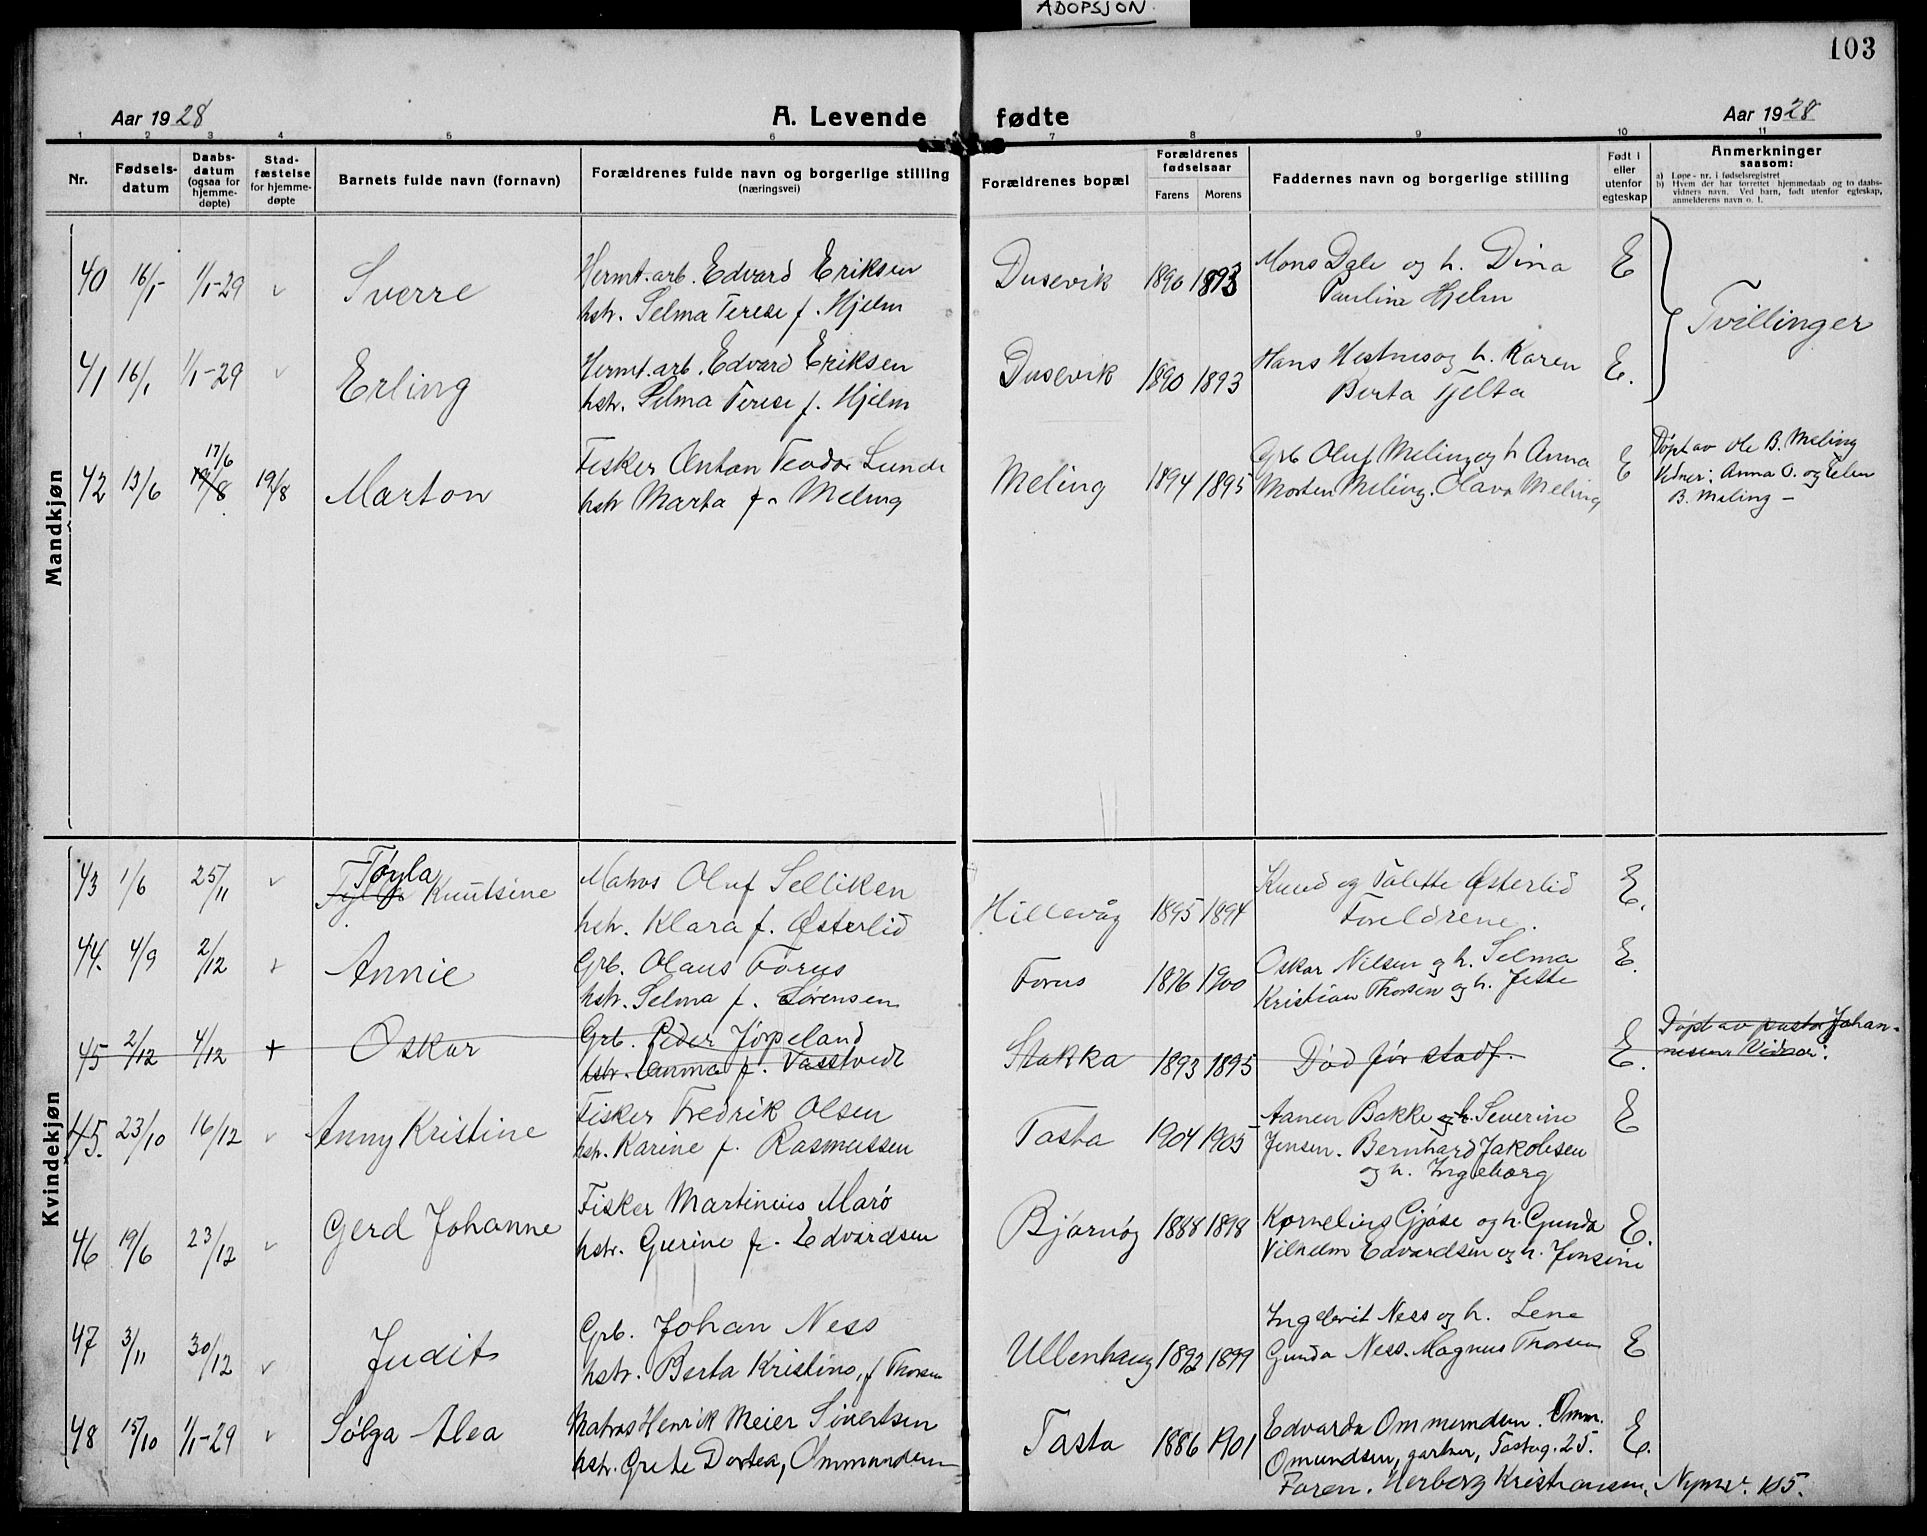 ADOPSJON.
103
Aar 1928 A. Levende fødte Aar 1928
1 2 3 4 5 6 7 8 9 10 11
Nr. Fødsels-datum Daabs-datum (ogsaa for hjemme-døpte) Stad-fæstelse for hjemme-døpte Barnets fulde navn (fornavn) Forældrenes fulde navn og borgerlige stilling (næringsvei) Forældrenes bopæl Forældrenes fødselsaar Farens Morens Faddernes navn og borgerlige stilling Født i eller utenfor egteskap Anmerkninger saasom:
a) Løpe-nr. i fødselsregistret
b) Hvem der har forrettet hjemmedaab og to daabs-vidners navn. Ved barn, født utenfor egteskap, anmelderens navn o. l.
Mandkjøn
40 16/1 1/1-29 Sverre Hermt.arb. Edvard Eriksen Dusevik 1890 1893 Mons Dale og h. Dina E
hstr. Selma Terese f. Hjelm Pauline Hjelm
Tvillinger
41 16/1 1/1-29 Erling Hermt.arb. Edvard Eriksen Dusevik 1890 1893 Hans Hestnes og h. Karen E.
hstr. Selma Terese f. Hjelm Berta Tjelta
42 13/6 17/6 19/8 19/8 Marton Fisker Anton Teodor Lunde Meling 1894 1895 Grb Oluf Meling og h Anna E Døpt av Ole B. Meling
hstr Marta f. Meling Morten Meling. Olava Meling Vidner: Anna O. og Elen
B. Meling -
Kvindekjøn
43 1/6 25/11 Tøyla Knutsine Matros Oluf Selliken Hillevåg 1895 1894 Knud og Talette Østerlid E.
hstr. Klara f. Østerlid Foreldrene.
44. 4/9 2/12 Annie Grb. Olaus Forus Forus 1876 1900 Oskar Nilsen og h. Selma E.
hstr. Selma f. Sørensen Kristian Thorsen og h. Jette
45 2/12 4/12 + Oskar Grb. Peder Jørpeland Stokka 1893 1895 Død før stadf. E. Døpt av pastor Johan-
hstr. Anna f. Vasstvedt nesen Vidner:
45. 23/10 16/12 Anny Kristine Fisker Fredrik Olsen Tasta 1904 1905 Aanen Bakke og h. Severine E
hstr. Karine f. Rasmussen Jensen. Bernhard Jakobsen
og h. Ingeborg
46 19/6 23/12 Gerd Johanne Fisker Martinius Marø Bjørnøy 1888 1898 Kornelius Gjøse og h. Gunda E.
hstr. Gurine f. Edvardsen Vilhelm Edvardsen og h. Jensine
47 3/11 30/12 Judit Grb. Johan Ness Ullenhaug 1892 1899 Ingebrit Ness og h. Lene E
hstr. Berta Kristine, f Thorsen Gunda Ness. Magnus Thorsen
48 15/10 1/1-29 Sølga Alea Matros Henrik Meier Sivertsen Tasta 1886 1901 Edvarda Ommundsen. Omm. E.
hstr. Grete Dortea, Ommundsen Omundsen, gartner, Tastag. 25.
Faren. Herborg Kristiansen, Nymv. 105.